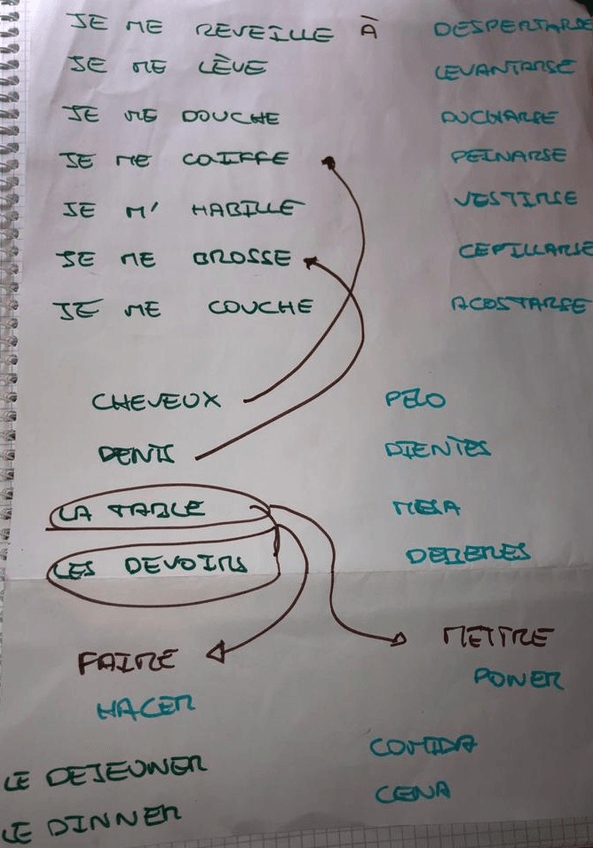 JE ME REVEILLE À DESPERTARSE
JE ME LÈVE LEVANTARSE
JE ME DOUCHE DUCHARSE
JE ME COIFFE PEINARSE
JE M' HABILLE VESTIRSE
JE ME BROSSE CEPILLARSE
JE ME COUCHE ACOSTARSE
CHEVEUX PELO
DENTS DIENTES
LA TABLE MESA
LES DEVOIRS DEBERES
FAIRE METTRE
HACER PONER
LE DEJEUNER COMIDA
LE DINNER CENA